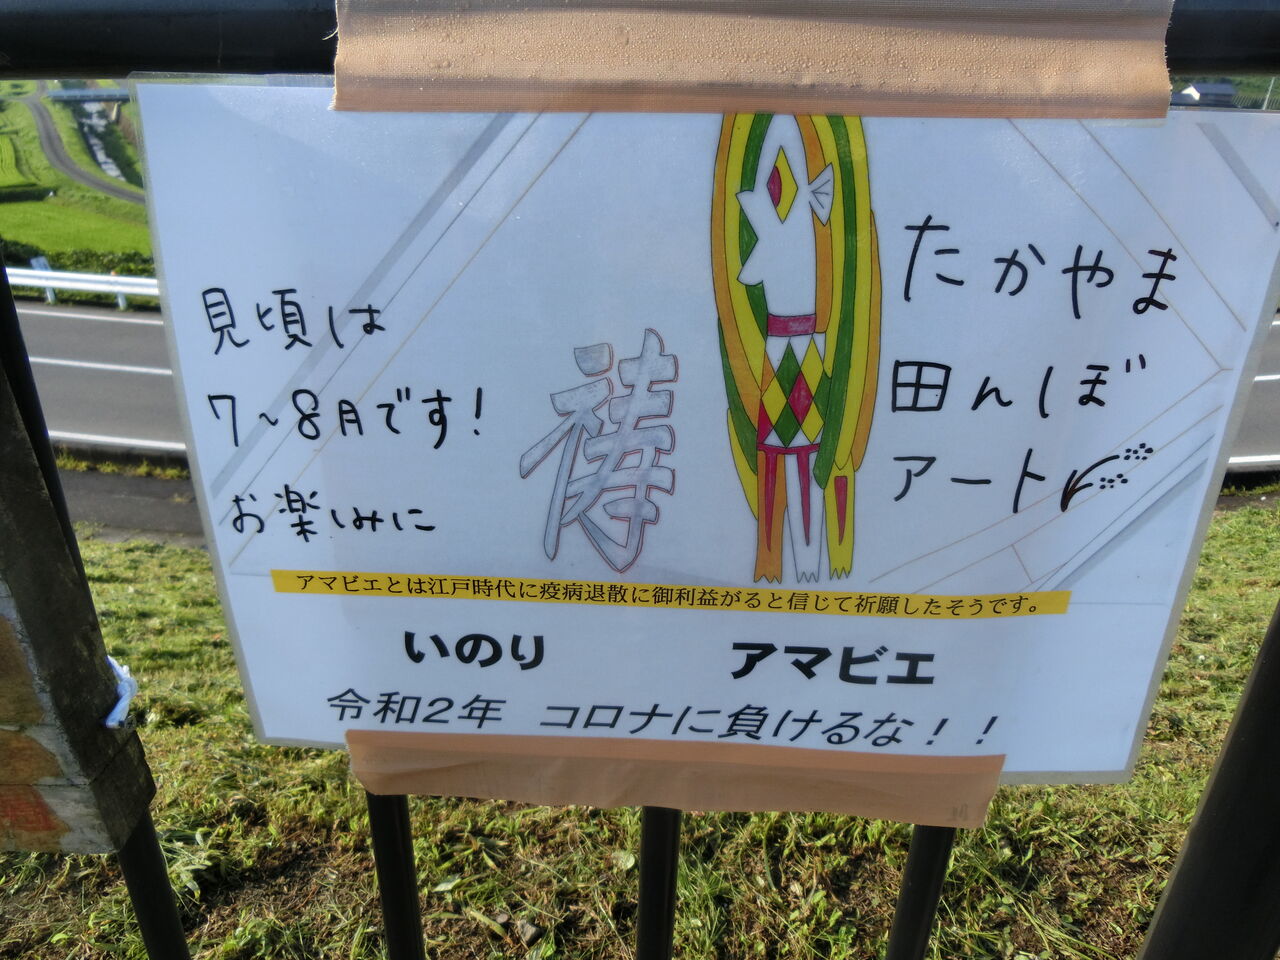 たかやま
田んぼ
アート
見頃は
7~8月です!
お楽しみに
祷
アマビエとは江戸時代に疫病退散に御利益がると信じて祈願したそうです。
いのり アマビエ
令和2年 コロナに負けるな!!